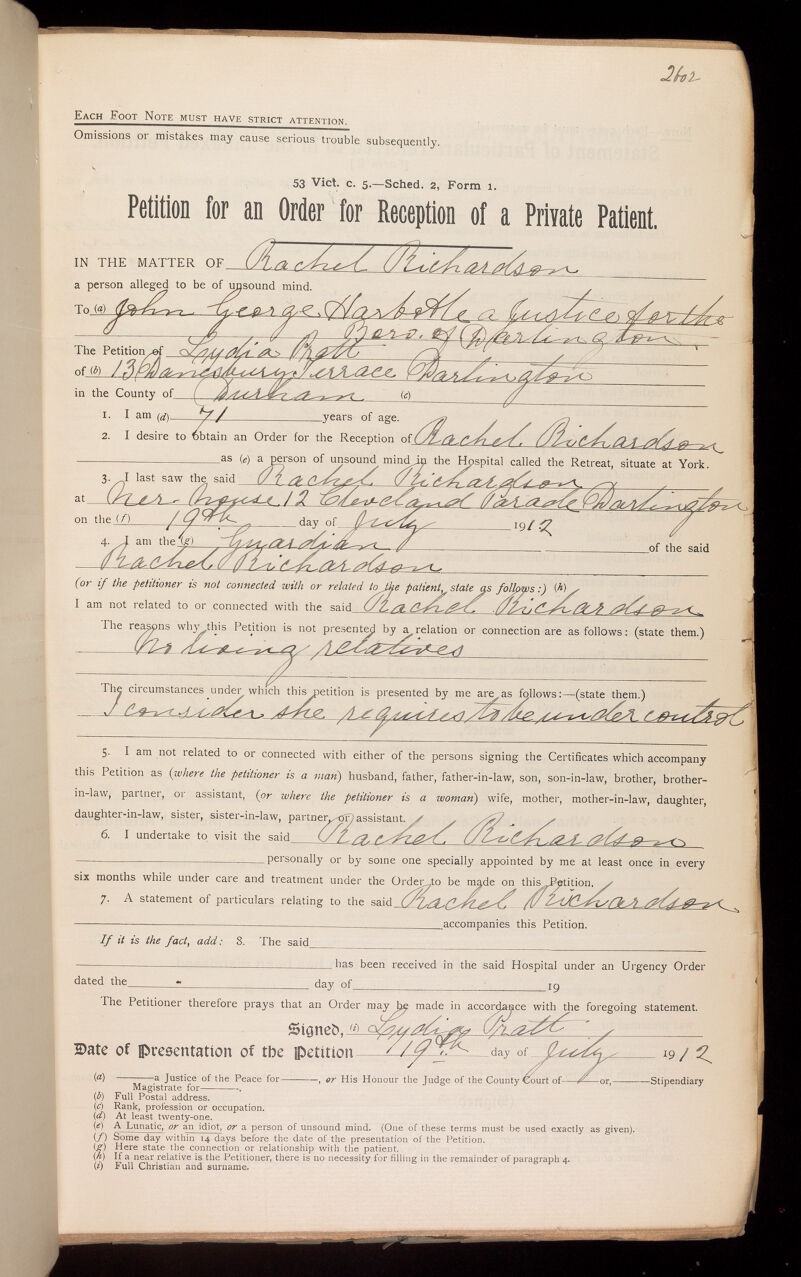 2602
EACH FOOT NOTE MUST HAVE STRICT ATTENTION.
Omissions or mistakes may cause serious trouble subsequently.
53 Vict. c. 5.—Sched. 2, Form 1.
Petition for an Order for Reception of a Private Patient.
IN THE MATTER OF Rachel Richardson
a person alleged to be of unsound mind.
To (a) John George Harbottle a Justice for the
Boro. of Darlington.
The Petition of Lydia Pratt
of (b) 13 Danesbury Terrace Darlington
in the County of Durham (c)
1. I am (d) 71 years of age.
2. I desire to obtain an Order for the Reception of Rachel Richardson
as (e) a person of unsound mind in the Hospital called the Retreat, situate at York.
3. I last saw the said Rachel Richardson
at her house 12 Cleveland Parade Darlington
on the (f) 19th day of July 1912
4. I am the (g) Guardian of the said
Rachel Richardson
(or if the petitioner is not connected with or related to the patient, state as follows:) (h)
I am not related to or connected with the said Rachel Richardson
The reasons why this Petition is not presented by a relation or connection are as follows: (state them.)
No living relatives
The circumstances under which this petition is presented by me are as follows:—(state them.)
I consider she requires to be under control
5. I am not related to or connected with either of the persons signing the Certificates which accompany
this Petition as (where the petitioner is a man) husband, father, father-in-law, son, son-in-law, brother, brother-
in-law, partner, or assistant, (or where the petitioner is a woman) wife, mother, mother-in-law, daughter,
daughter-in-law, sister, sister-in-law, partner, or assistant.
6. I undertake to visit the said Rachel Richardson
personally or by some one specially appointed by me at least once in every
six months while under care and treatment under the Order to be made on this Petition.
7. A statement of particulars relating to the said Rachel Richardson
accompanies this Petition.
If it is the fact, add: 8. The said
has been received in the said Hospital under an Urgency Order
dated the - day of 19
The Petitioner therefore prays that an Order may be made in accordance with the foregoing statement.
Signed, (i) Lydia Pratt
Date of Presentation of the Petition 19th day of July 1912
(a) ——a Justice of the Peace for——, or His Honour the Judge of the County Court of——or,——Stipendiary
Magistrate for——.
(b) Full Postal address.
(c) Rank, profession or occupation.
(d) At least twenty-one.
(e) A Lunatic, or an idiot, or a person of unsound mind. (One of these terms must be used exactly as given).
(f) Some day within 14 days before the date of the presentation of the Petition.
(g) Here state the connection or relationship with the patient.
(h) If a near relative is the Petitioner, there is no necessity for filling in the remainder of paragraph 4.
(i) Full Christian and surname.